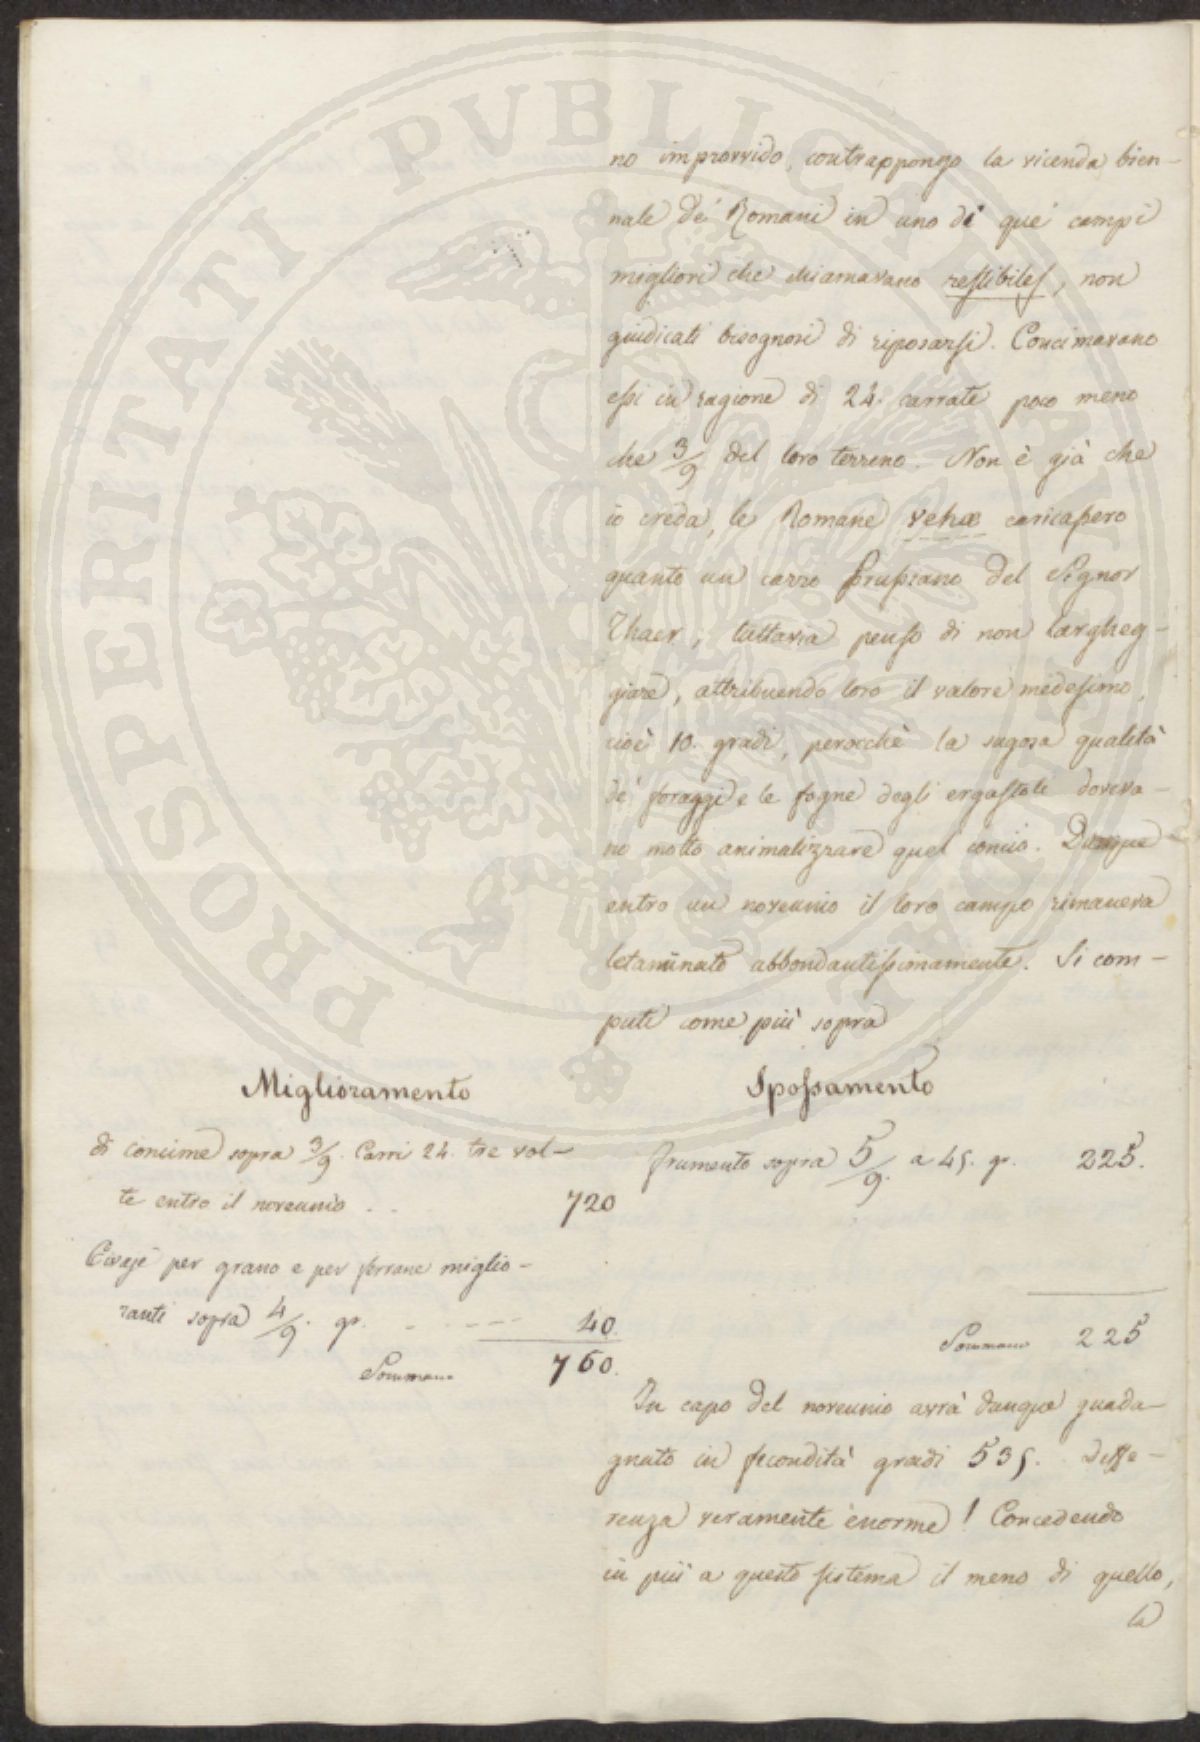 PROSPERITATI PVBLICAE AVGENDAE
no improvvido, contrappongo la vicenda bien-
nale de' Romani in uno di que' campi
migliori che chiamavano restibiles, non
giudicati bisognosi di riposarsi. Concimavano
essi in ragione di 24. carrate poco meno
che 3/9 del loro terreno. Non è già che
io creda, le Romane vehæ caricassero
quanto un carro Prussiano del Signor
Thaer; tuttavia penso di non largheg-
giare, attribuendo loro il valore medesimo,
cioè 10. gradi, perocchè la sugosa qualità
de' foraggi e le fogne degli ergastoli doveva-
no molto animalizzare quel concio. Dunque
entro un novennio il loro campo rimaneva
letaminato abbondantissimamente. Si com-
puti come più sopra
Miglioramento
di concime sopra 3/9. Carri 24. tre vol-
te entro il novennio . . 720
Civaje per grano e per ferrane miglio-
ranti sopra 4/9. gr. - - - - - 40.
Sommano 760.
Spossamento
frumento sopra 5/9. a 45. gr. 225.
Sommano 225
In capo del novennio avrà dunque guada-
gnato in fecondità gradi 535. Diffe-
renza veramente enorme! Concedendo
in più a questo sistema il meno di quello,
la